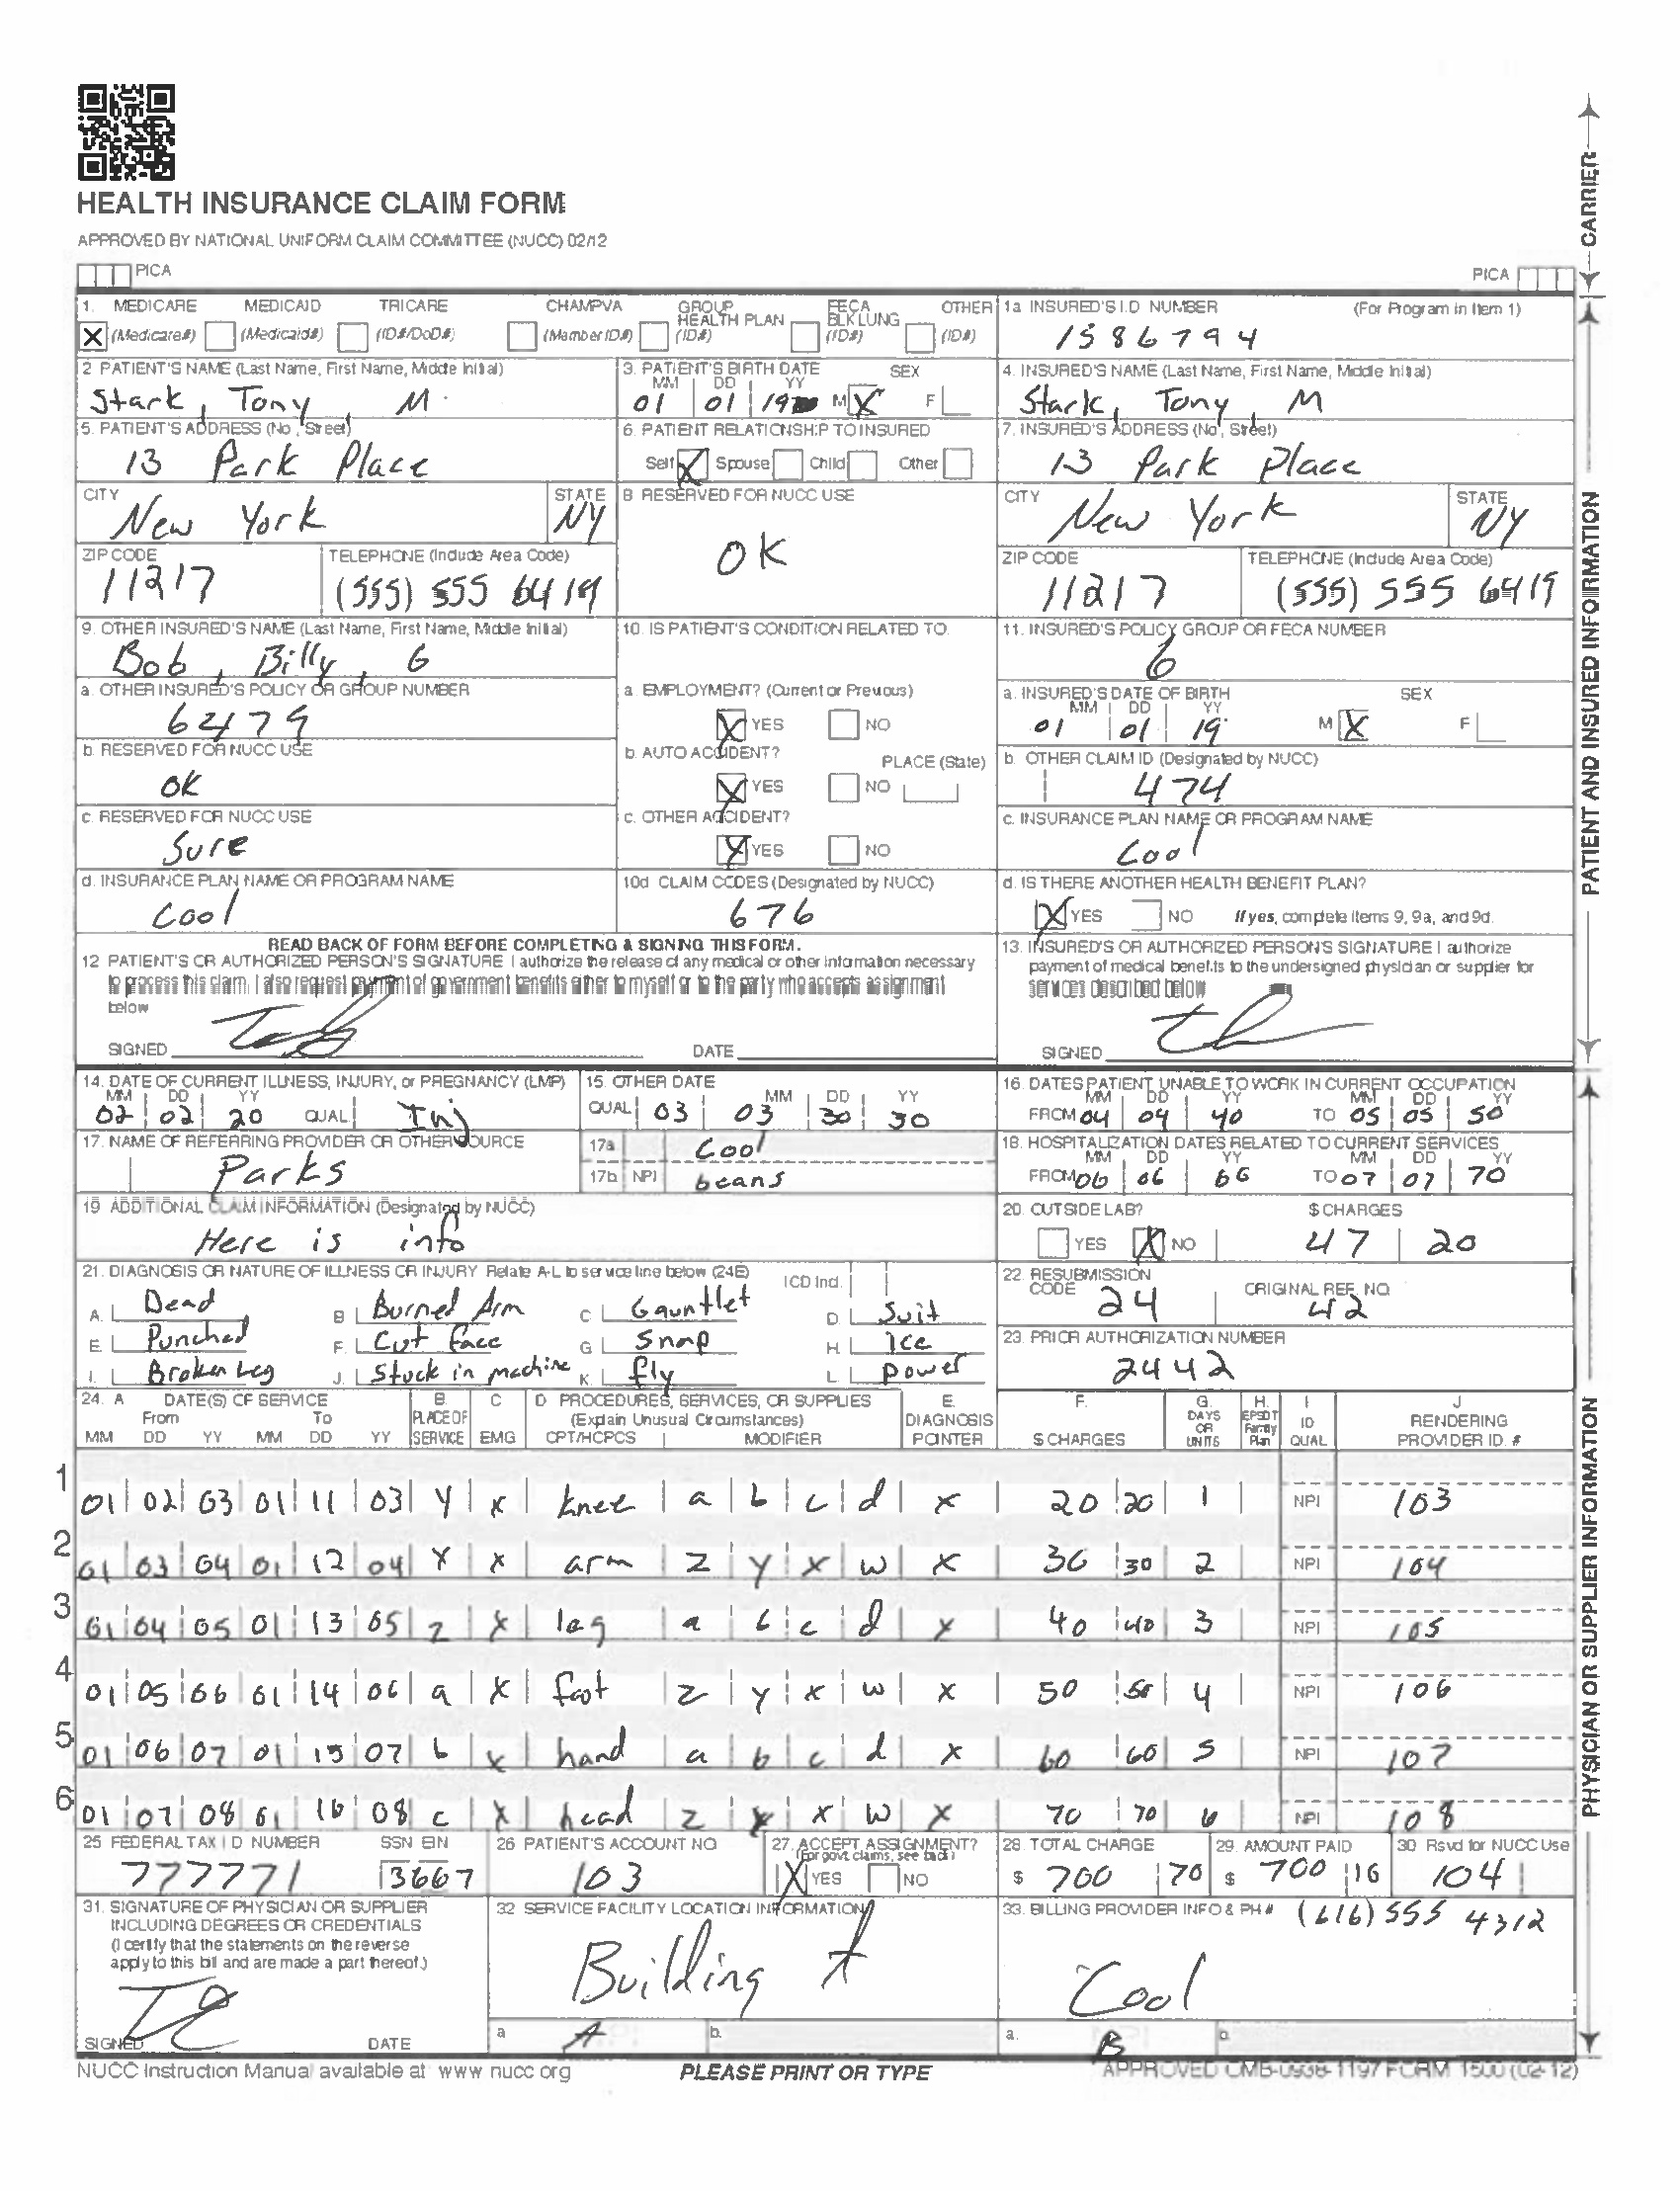 HEALTH INSURANCE CLAIM FORM
APPROVED BY NATIONAL UNIFORM CLAIM COMMITTEE (NUCC) 02/12
PICA PICA
CARRIER
1. MEDICARE MEDICAID TRICARE CHAMPVA GROUP HEALTH PLAN FECA BLK LUNG OTHER
X (Medicare#) (Medicaid#) (ID#/DoD#) (Member ID#) (ID#) (ID#) (ID#)
1a INSURED'S I.D NUMBER (For Program in Item 1)
1586794
2 PATIENT'S NAME (Last Name, First Name, Middle Initial)
Stark, Tony, M
3. PATIENT'S BIRTH DATE SEX
MM DD YY
01 01 19 M X F
4. INSURED'S NAME (Last Name, First Name, Middle Initial)
Stark, Tony, M
5. PATIENT'S ADDRESS (No, Street)
13 Park Place
6. PATIENT RELATIONSHIP TO INSURED
Self X Spouse Child Other
7. INSURED'S ADDRESS (No, Street)
13 Park Place
CITY STATE
New York NY
8 RESERVED FOR NUCC USE
OK
CITY STATE
New York NY
ZIP CODE TELEPHONE (Include Area Code)
11217 (555) 555 6419
ZIP CODE TELEPHONE (Include Area Code)
11217 (555) 555 6419
9. OTHER INSURED'S NAME (Last Name, First Name, Middle Initial)
Bob, Billy, G
10. IS PATIENT'S CONDITION RELATED TO
11. INSURED'S POLICY GROUP OR FECA NUMBER
6
a. OTHER INSURED'S POLICY OR GROUP NUMBER
6479
a. EMPLOYMENT? (Current or Previous)
X YES NO
a. INSURED'S DATE OF BIRTH SEX
MM DD YY
01 01 19 M X F
b. RESERVED FOR NUCC USE
OK
b. AUTO ACCIDENT? PLACE (State)
X YES NO
b. OTHER CLAIM ID (Designated by NUCC)
474
c. RESERVED FOR NUCC USE
Sure
c. OTHER ACCIDENT?
X YES NO
c. INSURANCE PLAN NAME OR PROGRAM NAME
Cool
d. INSURANCE PLAN NAME OR PROGRAM NAME
Cool
10d. CLAIM CODES (Designated by NUCC)
676
d. IS THERE ANOTHER HEALTH BENEFIT PLAN?
X YES NO If yes, complete items 9, 9a, and 9d.
PATIENT AND INSURED INFORMATION
READ BACK OF FORM BEFORE COMPLETING & SIGNING THIS FORM.
12 PATIENT'S OR AUTHORIZED PERSON'S SIGNATURE I authorize the release of any medical or other information necessary
to process this claim. I also request payment of government benefits either to myself or to the party who accepts assignment
below
SIGNED DATE
13. INSURED'S OR AUTHORIZED PERSON'S SIGNATURE I authorize
payment of medical benefits to the undersigned physician or supplier for
services described below
SIGNED
14. DATE OF CURRENT ILLNESS, INJURY, or PREGNANCY (LMP)
MM DD YY
02 02 20 QUAL Inj
15. OTHER DATE
MM DD YY
QUAL 03 03 30 30
16. DATES PATIENT UNABLE TO WORK IN CURRENT OCCUPATION
MM DD YY MM DD YY
FROM 04 04 40 TO 05 05 50
17. NAME OF REFERRING PROVIDER OR OTHER SOURCE
Parks
17a Cool
17b NPI beans
18. HOSPITALIZATION DATES RELATED TO CURRENT SERVICES
MM DD YY MM DD YY
FROM 06 06 66 TO 07 07 70
19 ADDITIONAL CLAIM INFORMATION (Designated by NUCC)
Here is info
20. OUTSIDE LAB? $ CHARGES
YES X NO 47 20
21. DIAGNOSIS OR NATURE OF ILLNESS OR INJURY Relate A-L to service line below (24E) ICD Ind.
A. Dead B Burned Arm C Gauntlet D. Suit
E. Punched F. Cut face G Snap H. Ice
I. Broken Leg J. Stuck in machine K. fly L. power
22. RESUBMISSION CODE ORIGINAL REF. NO.
24 42
23. PRIOR AUTHORIZATION NUMBER
2442
24. A DATE(S) OF SERVICE B. C D PROCEDURES, SERVICES, OR SUPPLIES E. F. G. H. I J
From To PLACE OF (Explain Unusual Circumstances) DIAGNOSIS DAYS OR EPSDT Family ID RENDERING
MM DD YY MM DD YY SERVICE EMG CPT/HCPCS MODIFIER POINTER $ CHARGES UNITS Plan QUAL PROVIDER ID. #
1 01 02 03 01 11 03 Y x knee a b c d x 20 20 1 NPI 103
2 01 03 04 01 12 04 Y x arm z y x w x 30 30 2 NPI 104
3 01 04 05 01 13 05 z x leg a b c d x 40 40 3 NPI 105
4 01 05 06 01 14 06 a x foot z y x w x 50 50 4 NPI 106
5 01 06 07 01 15 07 b x hand a b c d x 60 60 5 NPI 107
6 01 07 08 01 16 08 c x head z y x w x 70 70 6 NPI 108
25 FEDERAL TAX I D NUMBER SSN EIN
777771 3667
26 PATIENT'S ACCOUNT NO
103
27. ACCEPT ASSIGNMENT?
(For govt. claims, see back)
X YES NO
28. TOTAL CHARGE
$ 700 70
29. AMOUNT PAID
$ 700 16
30. Rsvd for NUCC Use
104
31. SIGNATURE OF PHYSICIAN OR SUPPLIER
INCLUDING DEGREES OR CREDENTIALS
(I certify that the statements on the reverse
apply to this bill and are made a part thereof.)
SIGNED DATE
32 SERVICE FACILITY LOCATION INFORMATION
Building A
a A b.
33. BILLING PROVIDER INFO & PH # (616) 555 4312
Cool
a. B b.
PHYSICIAN OR SUPPLIER INFORMATION
NUCC Instruction Manual available at www nucc org PLEASE PRINT OR TYPE APPROVED OMB-0938-1197 FORM 1500 (02-12)